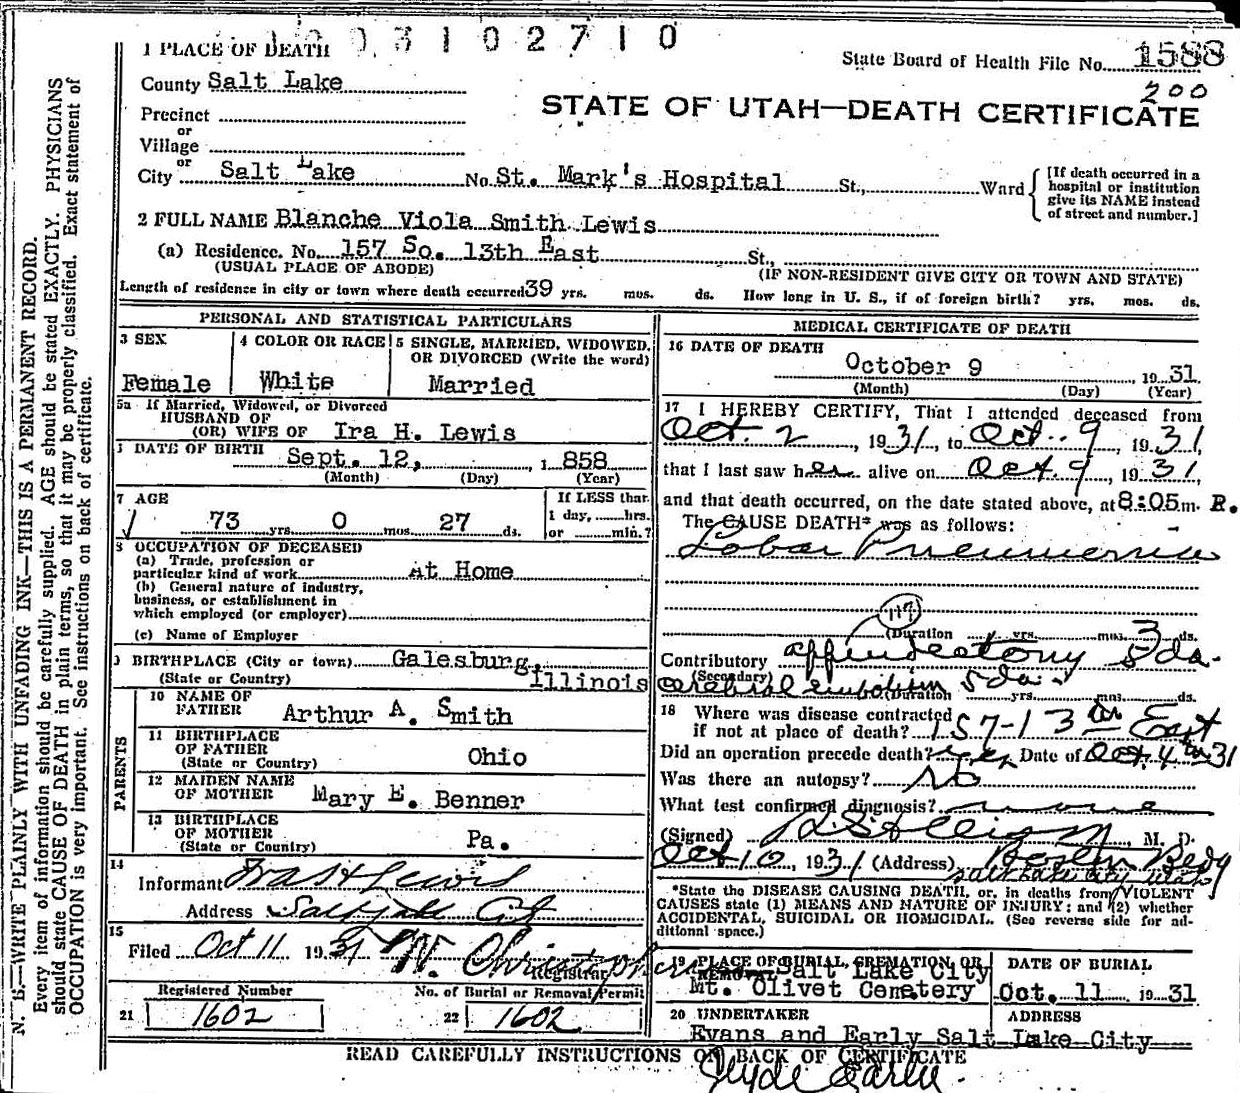 3 1 0 2 7 1 0
1 PLACE OF DEATH
State Board of Health File No. 1588
200
County Salt Lake
STATE OF UTAH—DEATH CERTIFICATE
Precinct
or
Village
or
City Salt Lake No. St. Mark's Hospital St., Ward
[If death occurred in a hospital or institution give its NAME instead of street and number.]
2 FULL NAME Blanche Viola Smith Lewis
(a) Residence. No. 157 So. 13th East St.,
(USUAL PLACE OF ABODE) (IF NON-RESIDENT GIVE CITY OR TOWN AND STATE)
Length of residence in city or town where death occurred 39 yrs. mos. ds. How long in U. S., if of foreign birth? yrs. mos. ds.
PERSONAL AND STATISTICAL PARTICULARS
3 SEX
Female
4 COLOR OR RACE
White
5 SINGLE, MARRIED, WIDOWED, OR DIVORCED (Write the word)
Married
5a If Married, Widowed, or Divorced
HUSBAND OF
(OR) WIFE OF Ira H. Lewis
DATE OF BIRTH Sept. 12, 1858
(Month) (Day) (Year)
7 AGE
73 yrs. 0 mos. 27 ds.
If LESS than
1 day, hrs.
or min.?
8 OCCUPATION OF DECEASED
(a) Trade, profession or
particular kind of work At Home
(b) General nature of industry,
business, or establishment in
which employed (or employer)
(c) Name of Employer
BIRTHPLACE (City or town) Galesburg,
(State or Country) Illinois
PARENTS
10 NAME OF
FATHER Arthur A. Smith
11 BIRTHPLACE
OF FATHER
(State or Country) Ohio
12 MAIDEN NAME
OF MOTHER Mary E. Benner
13 BIRTHPLACE
OF MOTHER
(State or Country) Pa.
14
Informant Ira H Lewis
Address Salt Lake City
15
Filed Oct 11 1931 W. Christopherson
Registrar
Registered Number
21 1602
No. of Burial or Removal Permit
22 1602
MEDICAL CERTIFICATE OF DEATH
16 DATE OF DEATH
October 9 1931
(Month) (Day) (Year)
17 I HEREBY CERTIFY, That I attended deceased from
Oct. 2, 1931, to Oct. 9 1931,
that I last saw her alive on Oct. 9, 1931,
and that death occurred, on the date stated above, at 8:05 m. P.
The CAUSE DEATH* was as follows:
Lobar Pneumonia
117
(Duration yrs. mos. 3 ds.
Contributory appendectomy 5 da.
(Secondary)
cerebral embolism 5 da.
(Duration yrs. mos. ds.
18 Where was disease contracted
if not at place of death? 157-13th East
Did an operation precede death? yes Date of Oct. 4th 31
Was there an autopsy? No
What test confirmed diagnosis? none
(Signed) M. D.
Oct 10, 1931 (Address) Boston Bldg
Salt Lake City Utah
*State the DISEASE CAUSING DEATH, or, in deaths from VIOLENT
CAUSES state (1) MEANS AND NATURE OF INJURY; and (2) whether
ACCIDENTAL, SUICIDAL OR HOMICIDAL. (See reverse side for ad-
ditional space.)
19 PLACE OF BURIAL, CREMATION, OR
REMOVAL Salt Lake City
Mt. Olivet Cemetery
DATE OF BURIAL
Oct. 11 1931
20 UNDERTAKER
Evans and Early
ADDRESS
Salt Lake City
READ CAREFULLY INSTRUCTIONS ON BACK OF CERTIFICATE
Clyde Early
N. B.—WRITE PLAINLY WITH UNFADING INK—THIS IS A PERMANENT RECORD.
Every item of information should be carefully supplied. AGE should be stated EXACTLY. PHYSICIANS
should state CAUSE OF DEATH in plain terms, so that it may be properly classified. Exact statement of
OCCUPATION is very important. See instructions on back of certificate.